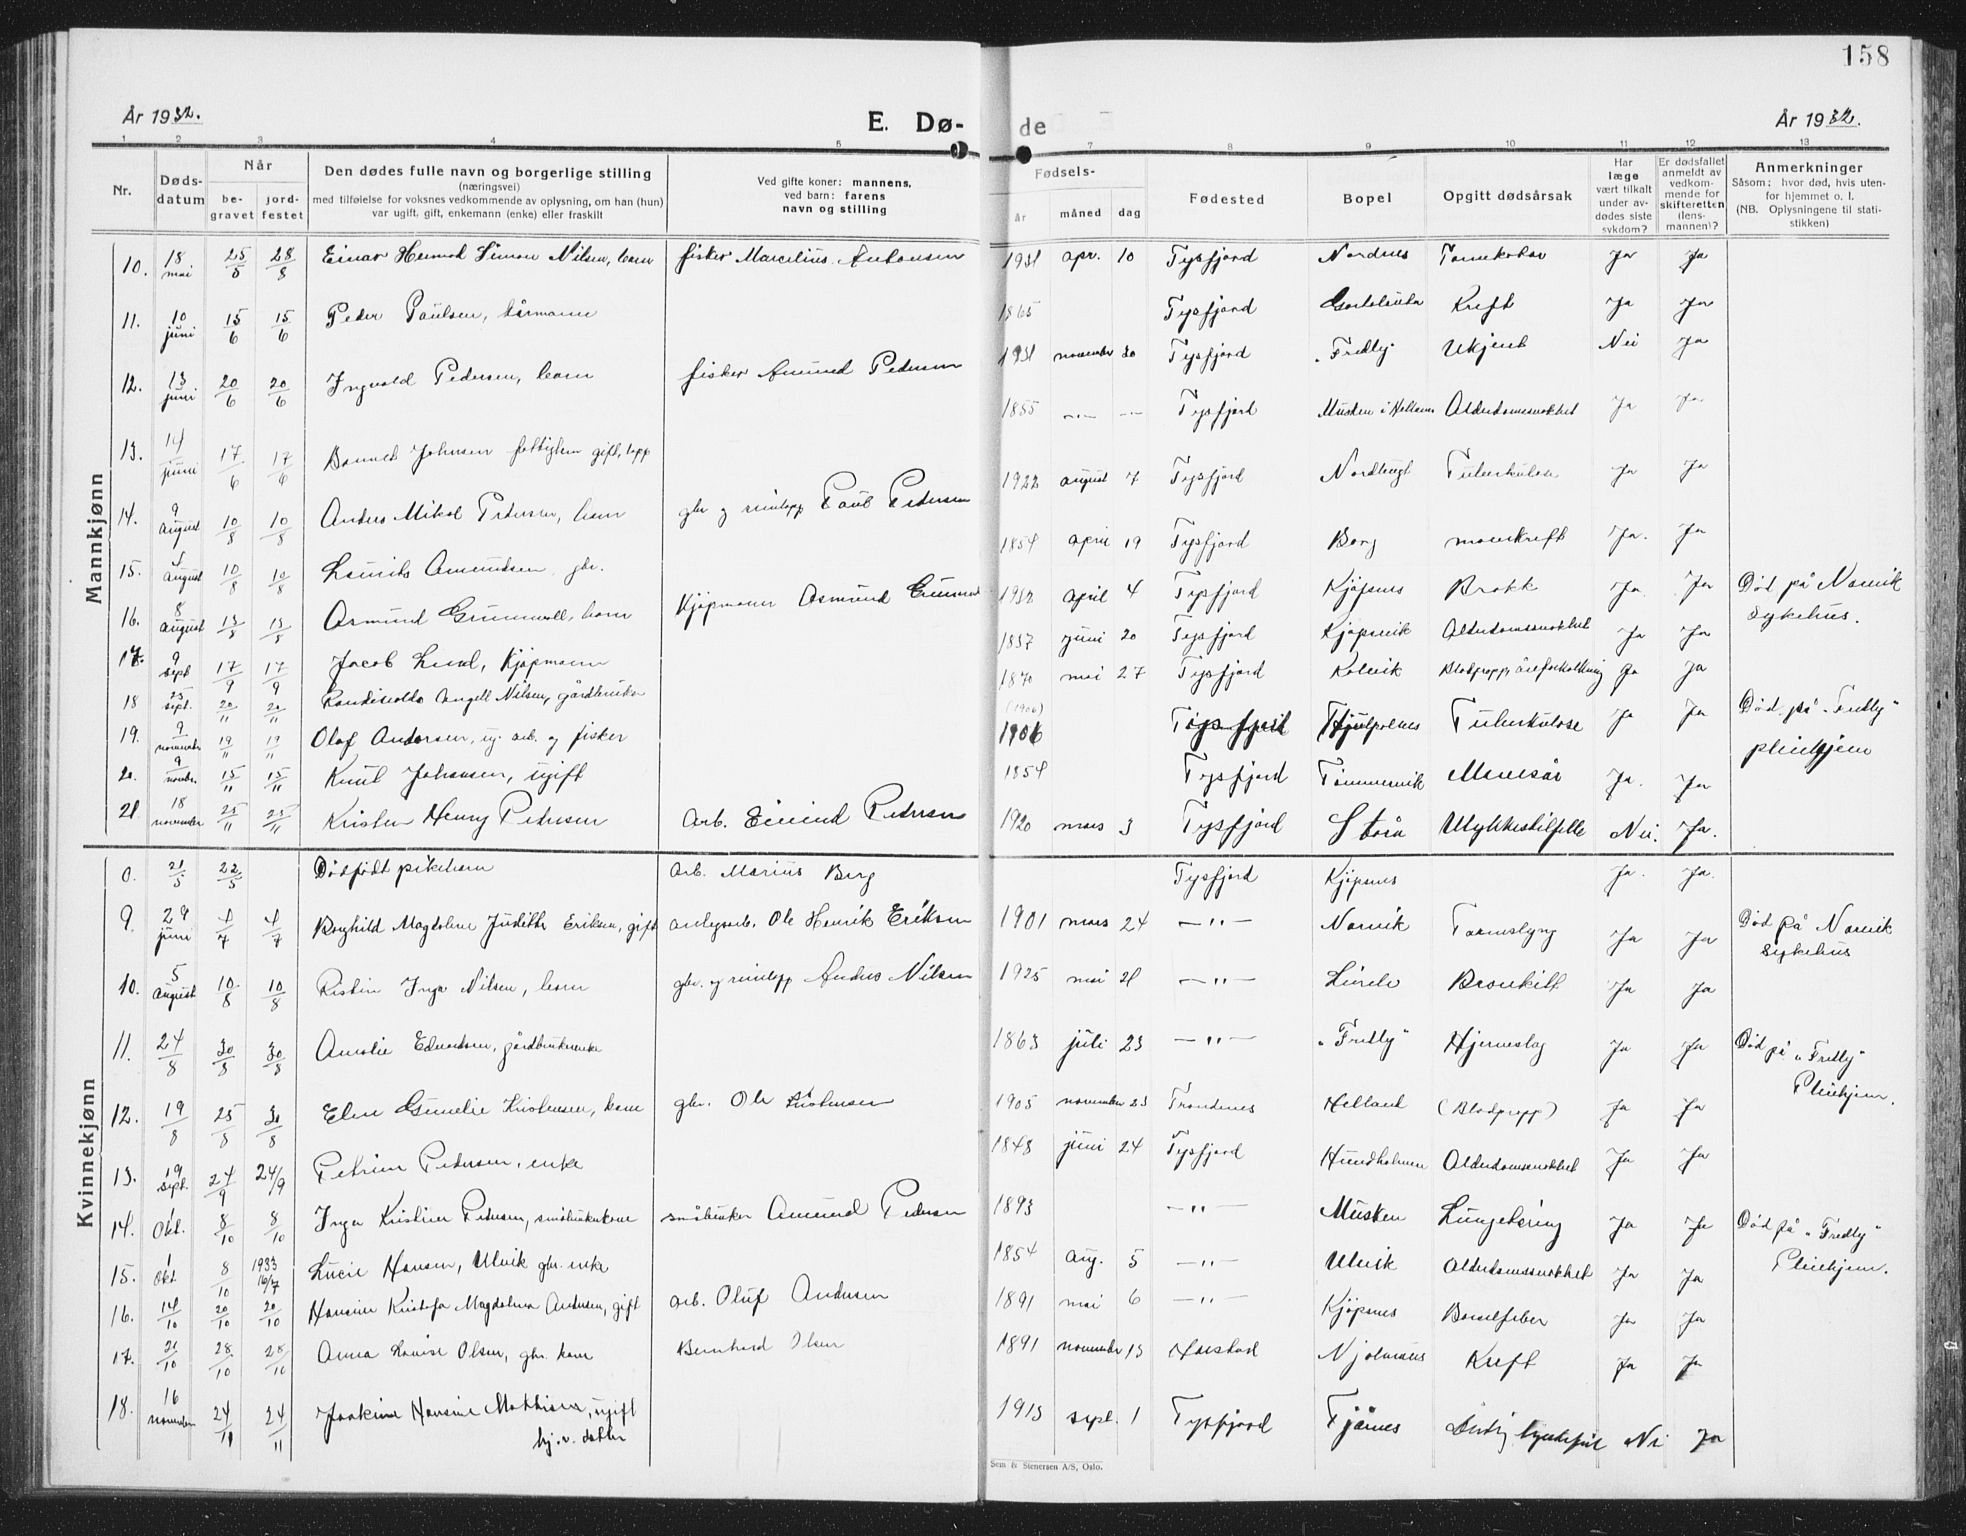 158
År 1932.
E. Dø-
de
År 1932.
1 2 3 4 5 7 8 9 10 11 12 13
Nr.
Døds-
datum
Når
be-
gravet
jord-
festet
Den dødes fulle navn og borgerlige stilling
(næringsvei)
med tilføielse for voksnes vedkommende av oplysning, om han (hun)
var ugift, gift, enkemann (enke) eller fraskilt
Ved gifte koner: mannens,
ved barn: farens
navn og stilling
Fødsels-
år måned dag
Fødested
Bopel
Opgitt dødsårsak
Har
læge
vært tilkalt
under av-
dødes siste
sykdom?
Er dødsfallet
anmeldt av
vedkom-
mende for
skifteretten
(lens-
mannen)?
Anmerkninger
Såsom: hvor død, hvis uten-
for hjemmet o. l.
(NB. Oplysningene til stati-
stikken)
Mannkjønn
10. 18 mai 25/5 28/8 Einar Simon Nilsen, barn fisker Marcelius Antonsen 1931 apr. 10 Tysfjord Nordnes Ja Ja
11. 10 juni 15/6 15/6 Peder Paulsen, kårmann 1865 Tysfjord Kreft Ja Ja
12. 13 juni 20/6 20/6 Ingvald Pedersen, barn fisker Amund Pedersen 1931 november 30 Tysfjord "Fredly" Ukjent Nei Ja
13. 14 juni 17/6 17/6 Johnsen gift, lapp 1855 — — Tysfjord Musken i Hellemo Alderdomssvakhet Ja Ja
14. 9 august 10/8 10/8 Anders Mikal Pedersen, barn gbr og reinlapp Paul Pedersen 1922 august 7 Tysfjord Tuberkulose Ja Ja
15. 5 august 10/8 10/8 Laurits Amundsen gbr. 1854 april 19 Tysfjord Borg mavekreft Ja. Ja
16. 8 august 13/8 13/8 Asmund barn Kjøpmann Asmund 1932 april 4 Tysfjord Kjøpsnes Brokk Ja. Ja Død på Narvik
sykehus.
17. 9 sept 17/9 17/9 Jacob Lund, Kjøpmann 1837 juni 20 Tysfjord Kjøpsvik Alderdomssvakhet Ja Ja
18 25 sept. 20/11 20/11 Angell Nilsen, gårdbruker 1870 mai 27 Tysfjord Kalvik Blodpropp, åreforkalkning Ja Ja
19. 9 november 19/11 19/11 Olaf Andersen, ug. arb. og fisker (1906) 1906 Tysfjord Tuberkulose Ja Ja Død på "Fredly"
pleiehjem
20. 9 novbr. 15/11 15/11 Knut Johansen, ugift 1854 Tysfjord Tømmervik Mavesår Ja. Ja
21. 18 november 25/11 25/11 Kristen Henry Pedersen Arb. Eivind Pedersen 1920 mars 3 Tysfjord Storå Ulykkestilfelle Nei. Ja.
Kvinnekjønn
0. 21/5 22/5 Dødfødt pikebarn arb. Marius Berg Tysfjord Kjøpsnes Ja. Ja.
9. 29 juni 4/7 4/7 Borghild Magdalene Judithe Eriksen, gift anlegsarb. Ole Henrik Eriksen 1901 mars 24 —"— Narvik Tarmslyng Ja Ja Død på Narvik
sykehus
10. 5 august 10/8 10/8 Ristin Inga Nilsen, barn gbr. og reinlapp Anders Nilsen 1925 mai 21 —"— Bronkitt Ja Ja
11. 24/8 30/8 30/8 Amalie Edvardsen, gårdbrukerenke 1863 juli 23 —"— "Fredly" Hjerneslag Ja Ja Død på "Fredly"
Pleiehjem.
12. 19/8 25/8 30/8 Elen Gunelie Kristensen, kone gbr. Ole Kristensen 1905 november 23 Trondenes Helland (Blodpropp) Ja Ja
13. 19 sept. 24/9 24/9 Petrine Pedersen, enke 1848 juni 24 Tysfjord Hundholmen Alderdomssvakhet Ja Ja
14. 1 Okt. 8/10 8/10 Inga Kristine Pedersen, småbrukerkone småbruker Amund Pedersen 1893 —"— Musken Lungetæring Ja Ja Død på "Fredly"
Pleiehjem.
15. 1 Okt 8/10 1933 16/7 Lucie Hansen, Ulvik gbr. enke 1854 aug. 5 —"— Ulvik Alderdomssvakhet Ja Ja
16. 14/10 20/10 20/10 Hansine Kristofa Magdalena Andersen, gift arb. Oluf Andersen 1891 mai 6 —"— Kjøpsnes Barselfeber Ja Ja
17. 21/10 28/10 28/10 Anna Lovise Olsen, gbr. kone Bernhard Olsen 1891 november 13 Harstad Kreft Ja Ja
18. 16 november 24/11 24/11 Joakime Hansine Mathisen, ugift
hj.v. datter 1913 sept. 1 Tysfjord Tjårnes Nei Ja
Sem & Stenersen A/S, Oslo.